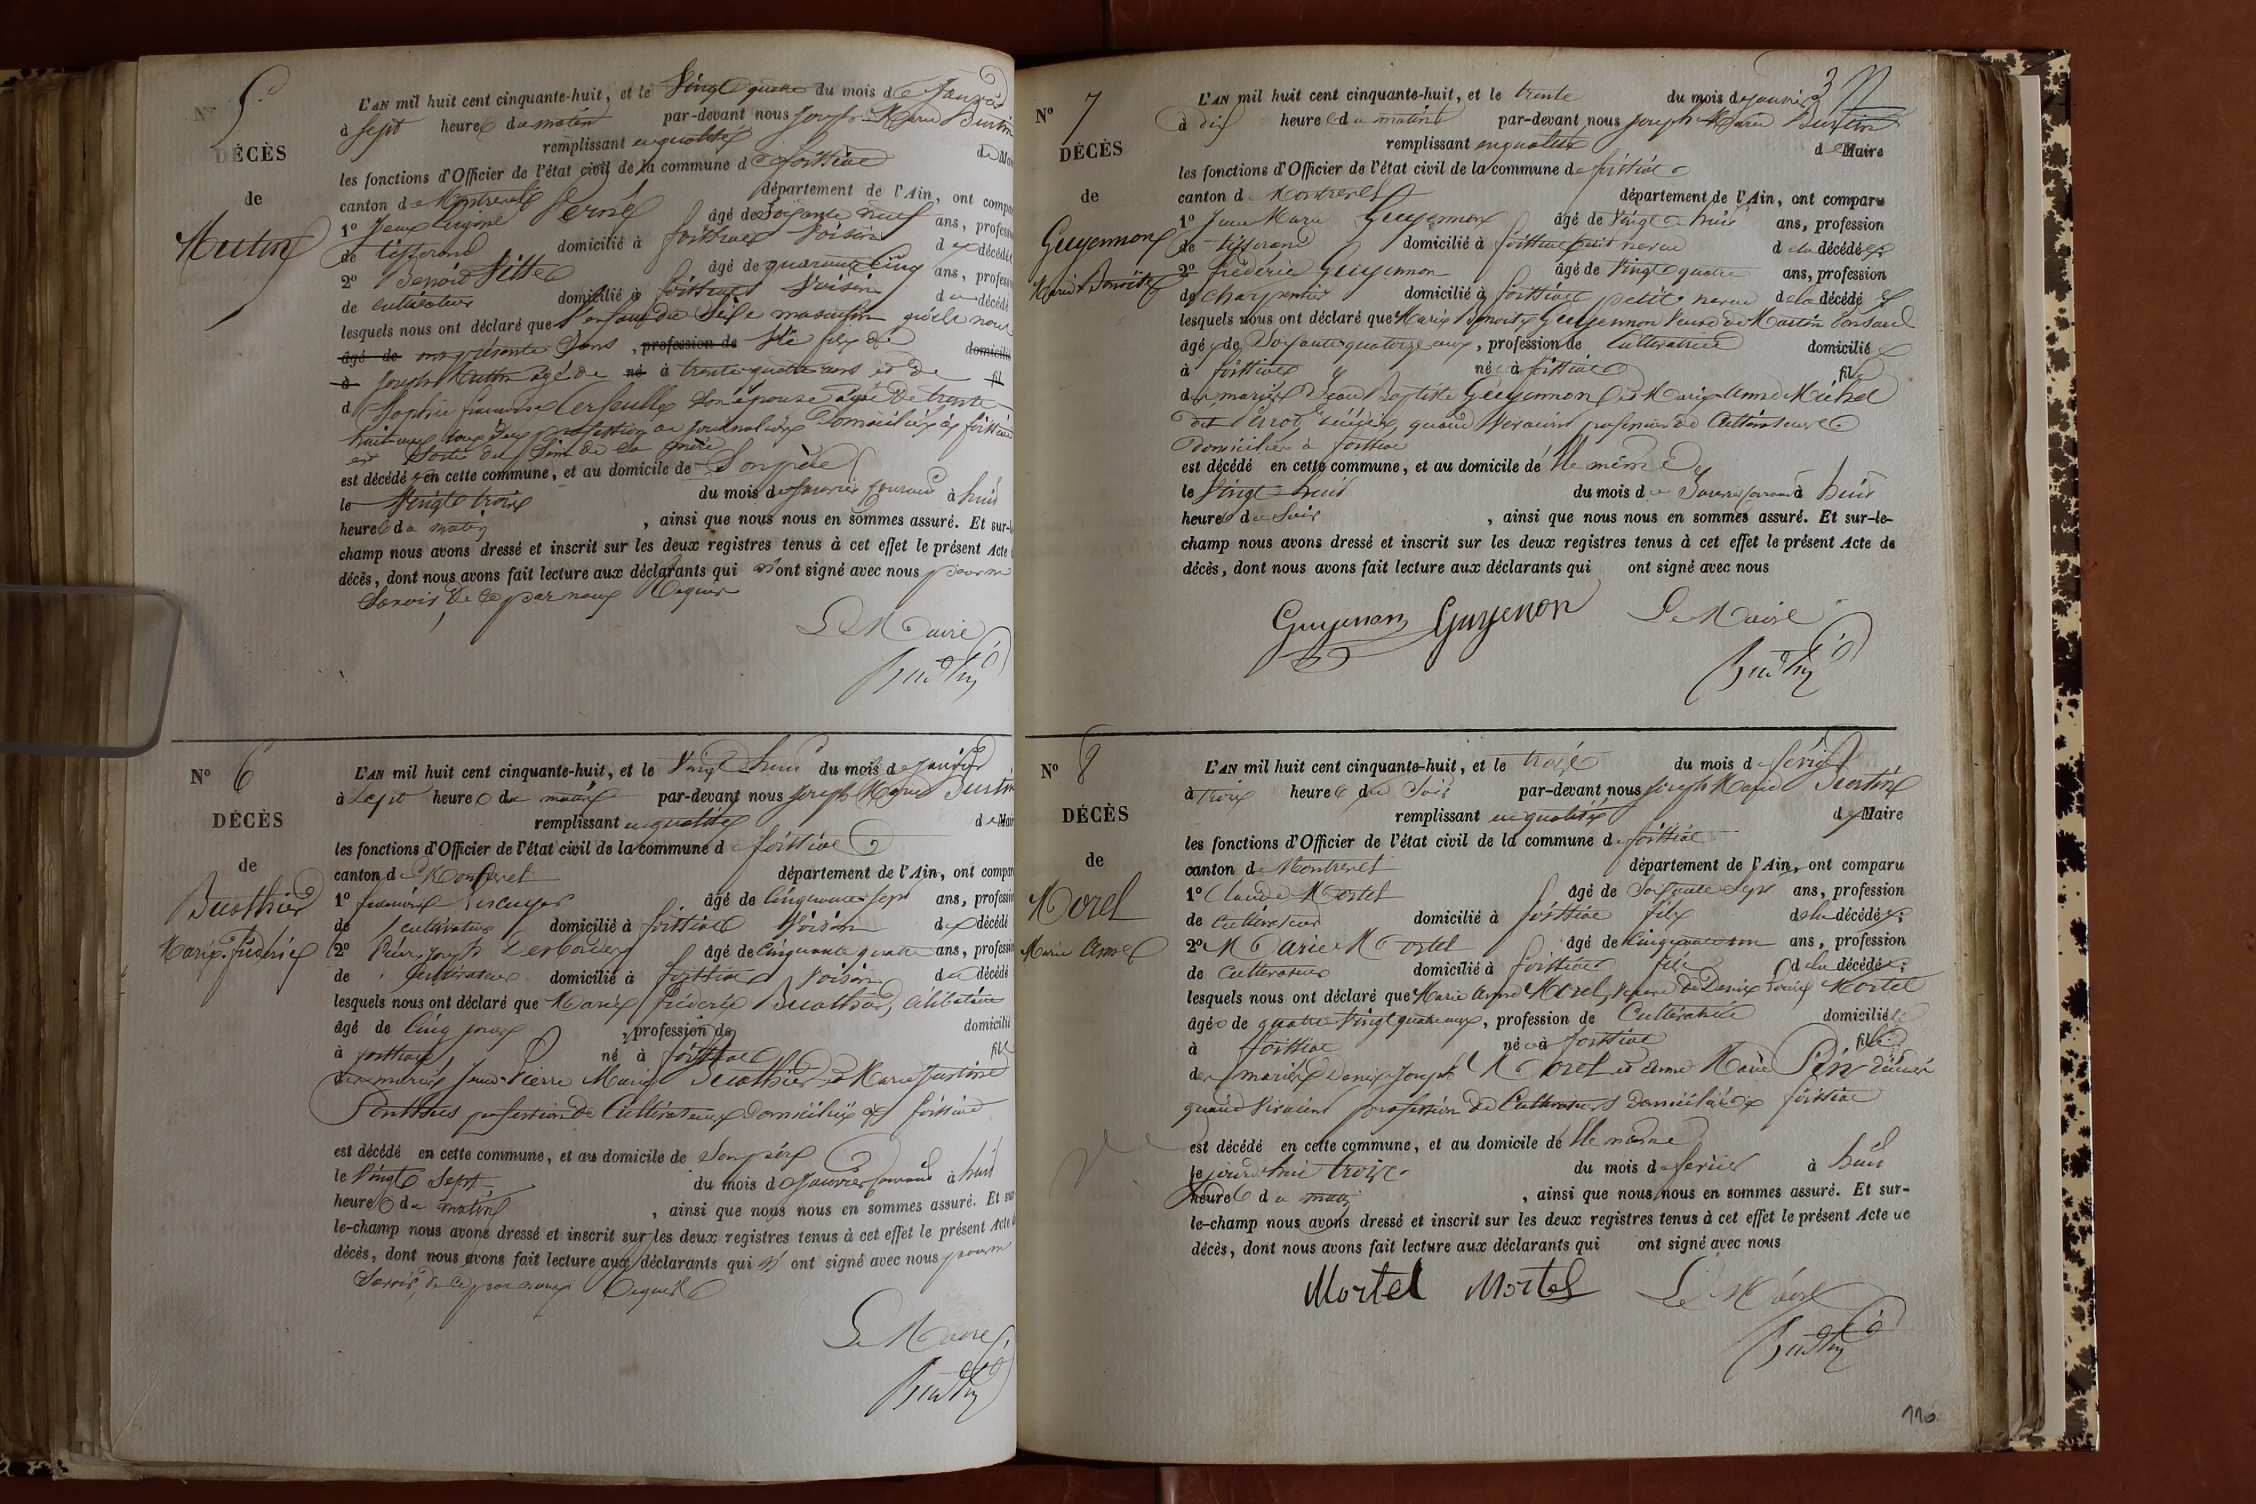 N° 5
DÉCÈS
de
L'AN mil huit cent cinquante-huit, et le Vingt quatre du mois de Janvier
à sept heures du matin par-devant nous Joseph Marie
remplissant en qualité de
les fonctions d'Officier de l'état civil de la commune de foissiat
canton de Montrevel département de l'Ain, ont
1° âgé de soixante neuf ans,
de tisserand domicilié à foissiat voisin du décédé
2° Benoit âgé de quarante cinq ans,
de cultivateur domicilié à foissiat voisin du décédé
lesquels nous ont déclaré que l'enfant du sexe masculin qu'ils nous
âgé de , profession de domicilié
à Joseph âgé de né à trente quatre ans et de fil
d Sophie son épouse âgée de trente
huit ans tous deux profession de journaliers domiciliés à foissiat
est sorti du sein de sa mère
est décédé en cette commune, et au domicile de Son père
le Vingt trois du mois de Janvier courant à huit
heures du matin , ainsi que nous nous en sommes assuré. Et sur-le-
champ nous avons dressé et inscrit sur les deux registres tenus à cet effet le présent Acte
décès, dont nous avons fait lecture aux déclarants qui n'ont signé avec nous pour ne
Savoir, de ce par nous requis
Le Maire
N° 6
DÉCÈS
de
Buathier
L'AN mil huit cent cinquante-huit, et le Vingt huit du mois de janvier
à sept heures du matin par-devant nous Joseph Marie
remplissant en qualité de
les fonctions d'Officier de l'état civil de la commune de foissiat
canton de Montrevel département de l'Ain, ont
1° âgé de cinquante sept ans,
de cultivateur domicilié à foissiat Voisin du décédé
2° Pierre Joseph âgé de cinquante quatre ans,
de cultivateur domicilié à foissiat Voisin du décédé
lesquels nous ont déclaré que Marie Buathier, célibataire
âgé de cinq jours , profession de domicilié
à foissiat né à foissiat fil
des mariés Jean Pierre Marie Buathier et Marie Justine
profession de Cultivateurs domiciliés à foissiat
est décédé en cette commune, et au domicile de son père
le Vingt Sept du mois de Janvier courant à huit
heures du matin , ainsi que nous nous en sommes assuré. Et sur
le-champ nous avons dressé et inscrit sur les deux registres tenus à cet effet le présent Acte
décès, dont nous avons fait lecture aux déclarants qui n'ont signé avec nous pour ne
Savoir, de ce par nous requis
Le Maire
N° 7
DÉCÈS
de
Guyennon
Marie Benoite
L'AN mil huit cent cinquante-huit, et le trente du mois de janvier
à dix heures du matin par-devant nous Joseph Marie
remplissant en qualité de Maire
les fonctions d'Officier de l'état civil de la commune de foissiat
canton de Montrevel département de l'Ain, ont comparu
1° Jean Marie Guyennon âgé de Vingt huit ans, profession
de tisserand domicilié à foissiat petit neveu de la décédée;
2° frédéric Guyennon âgé de Vingt quatre ans, profession
de charpentier domicilié à foissiat petit neveu de la décédée;
lesquels nous ont déclaré que Marie Benoite Guyennon veuve de Martin
âgée de Soixante quatorze ans, profession de Cultivatrice domiciliée
à foissiat née à foissiat fille
des mariés Jean Baptiste Guyennon et Marie Anne Michel
dit décédés, quand vivaient profession de Cultivateurs
Domiciliés à foissiat
est décédé en cette commune, et au domicile de Elle même
le Vingt huit du mois de Janvier courant à huit
heures du Soir , ainsi que nous nous en sommes assuré. Et sur-le-
champ nous avons dressé et inscrit sur les deux registres tenus à cet effet le présent Acte de
décès, dont nous avons fait lecture aux déclarants qui ont signé avec nous
Guyenon Guyenon Le Maire
N° 8
DÉCÈS
de
Morel
Marie Anne
L'AN mil huit cent cinquante-huit, et le trois du mois de février
à trois heures du Soir par-devant nous Joseph Marie
remplissant en qualité de Maire
les fonctions d'Officier de l'état civil de la commune de foissiat
canton de Montrevel département de l'Ain, ont comparu
1° Claude Mortel âgé de Soixante Sept ans, profession
de cultivateur domicilié à foissiat fils de la décédée;
2° Marie Mortel âgé de cinquante un ans, profession
de cultivateur domicilié à foissiat fils de la décédée;
lesquels nous ont déclaré que Marie Anne Morel, veuve de Denis Mortel
âgée de quatre Vingt quatre ans, profession de Cultivatrice domiciliée
à foissiat née à foissiat fille
des mariés Denis Joseph Morel et Anne Marie décédés
quand vivaient profession de Cultivateurs domiciliés à foissiat
est décédé en cette commune, et au domicile de Elle même
le jourd'hui trois du mois de février à huit
heures du matin , ainsi que nous nous en sommes assuré. Et sur-
le-champ nous avons dressé et inscrit sur les deux registres tenus à cet effet le présent Acte de
décès, dont nous avons fait lecture aux déclarants qui ont signé avec nous
Mortel Mortel Le Maire
116